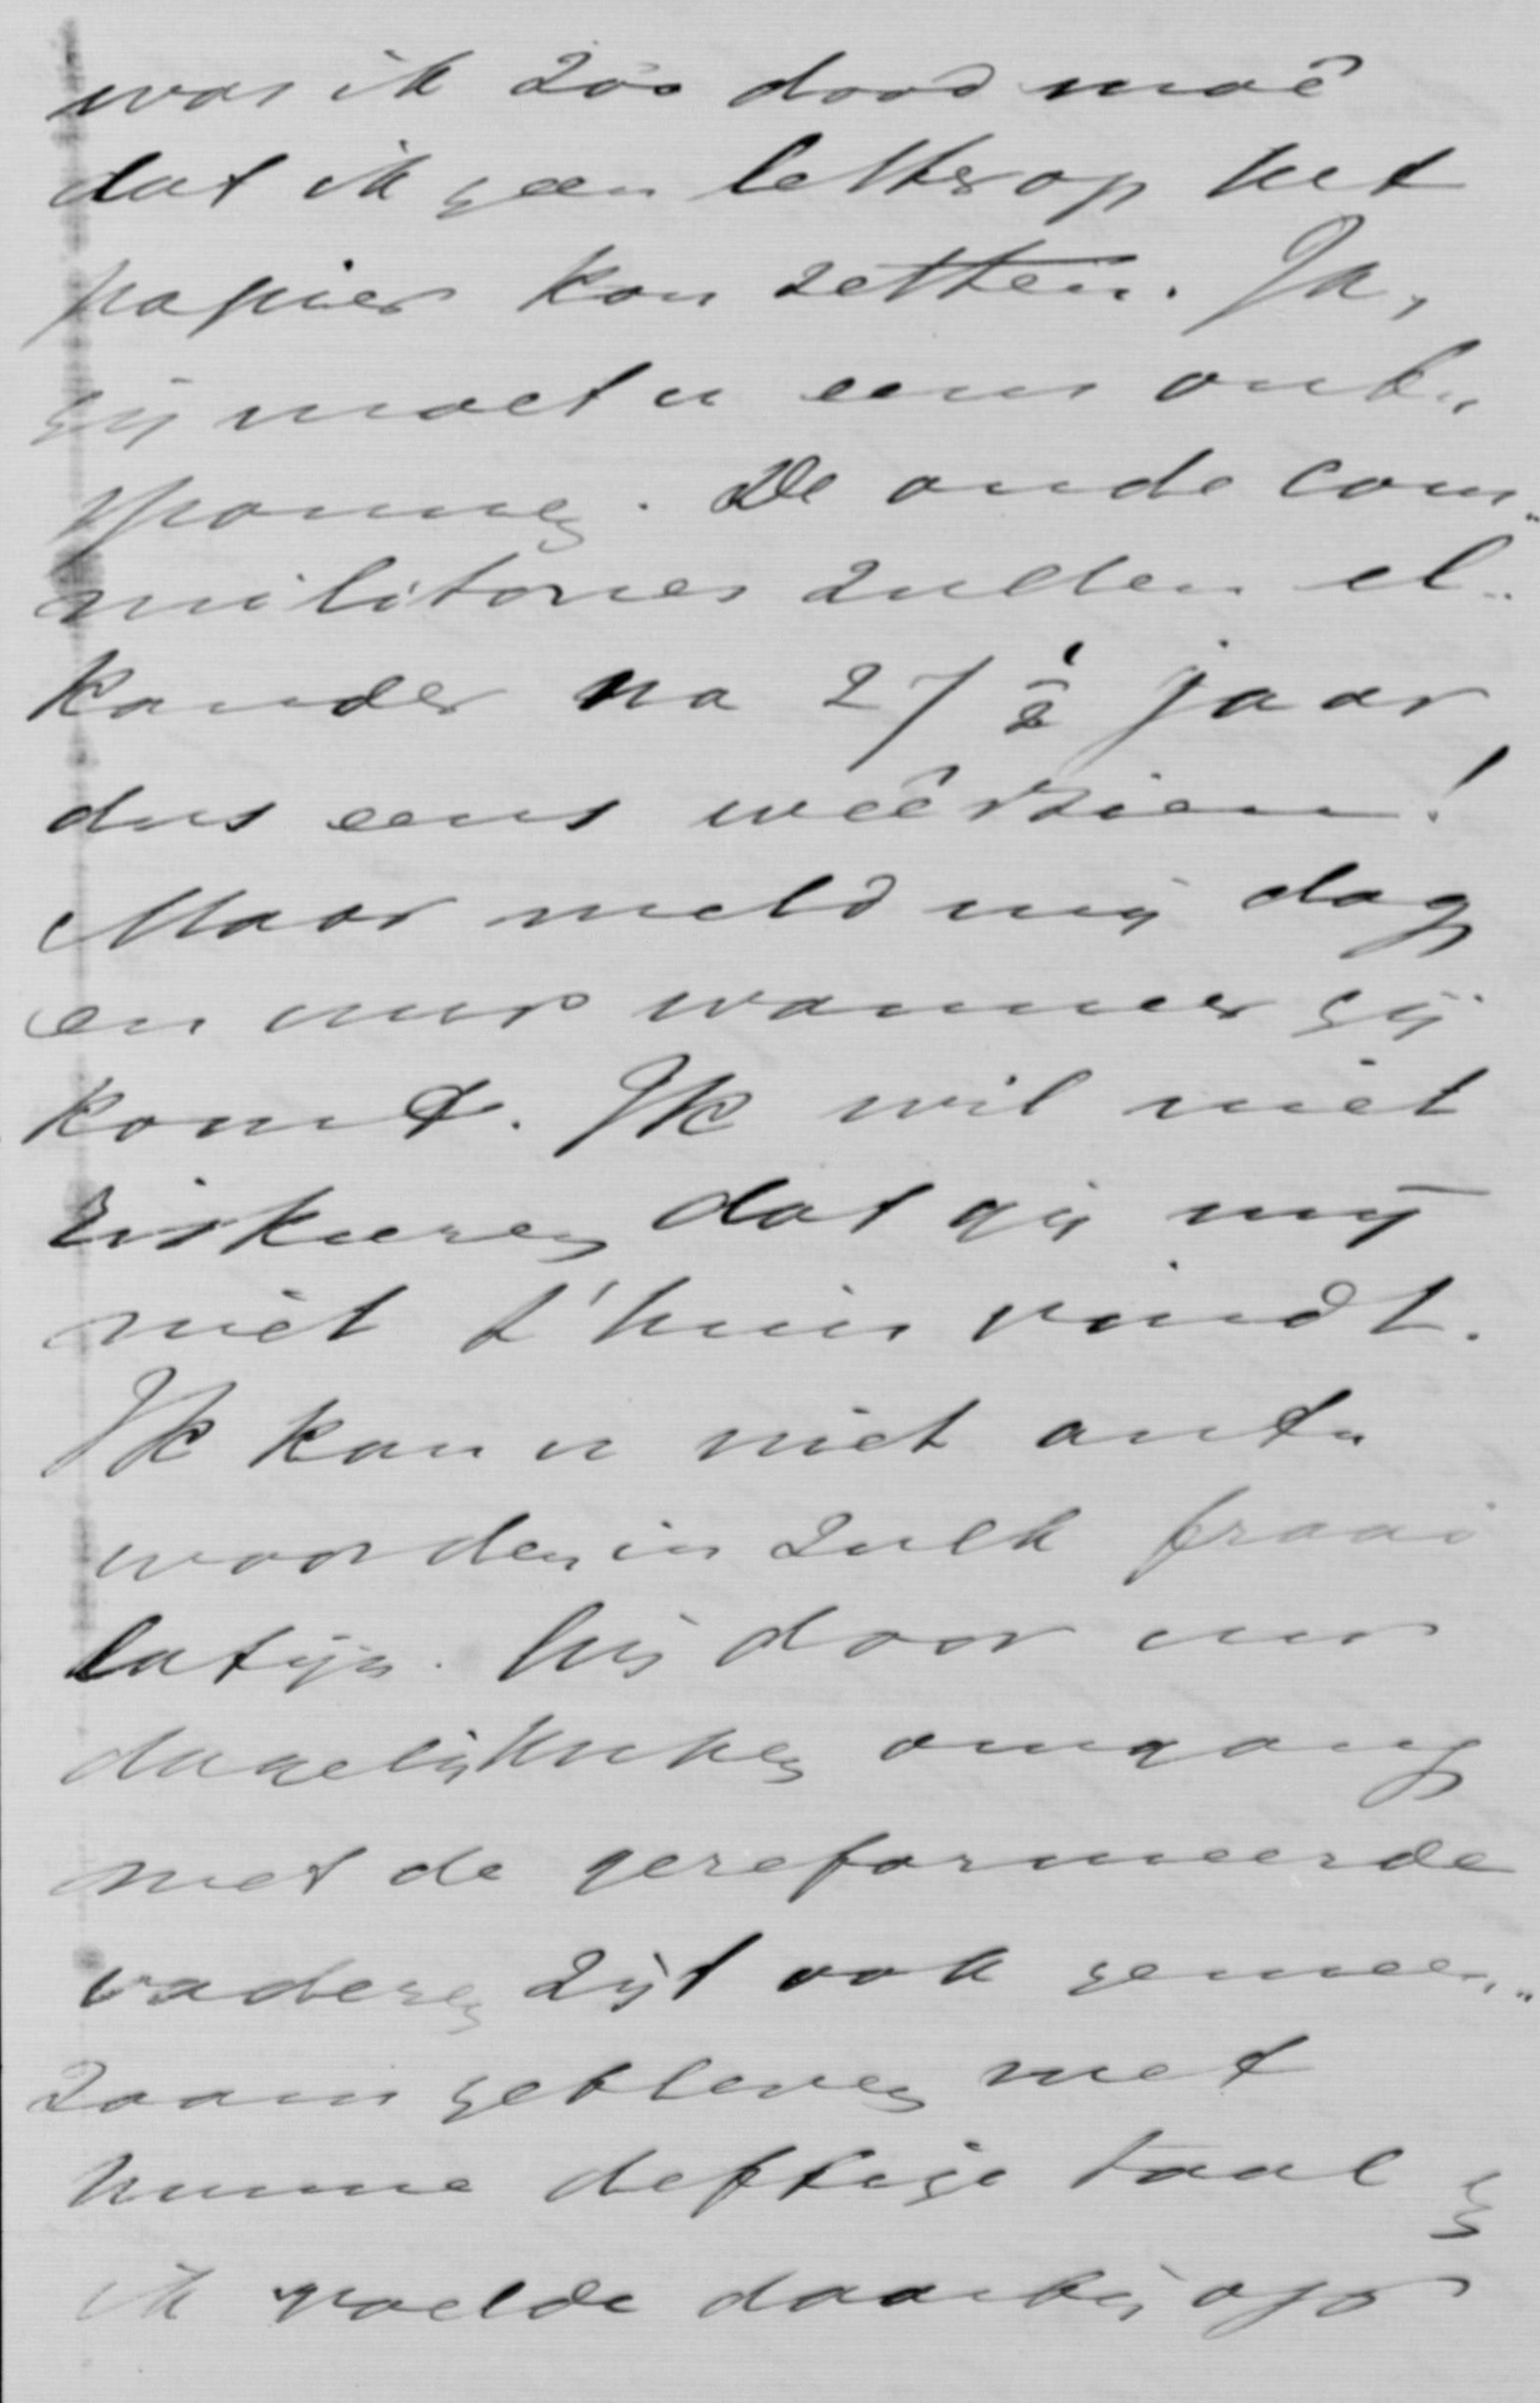 was ik zóó dood moê
dat ik geen letter op het
papier kon zetten. Ja,
gij moet u eens ont„
spannen. De oude com„
militones zullen el„
kander na 27 1/2 jaar
dus eens weêrzien!
Maar meld mij dag
en uur wanneer gij
komt. Ik wil niet
riskeren dat gij mij
niet t'huis vindt.
Ik kan u niet ant„
woorden in zulk fraai
latijn. Gij door uw
dagelijkschen omgang
met de gereformeerde
vaderen zijt ook gemeen„
zaam gebleven met
hunne deftige taal en
ik voelde daarbij op